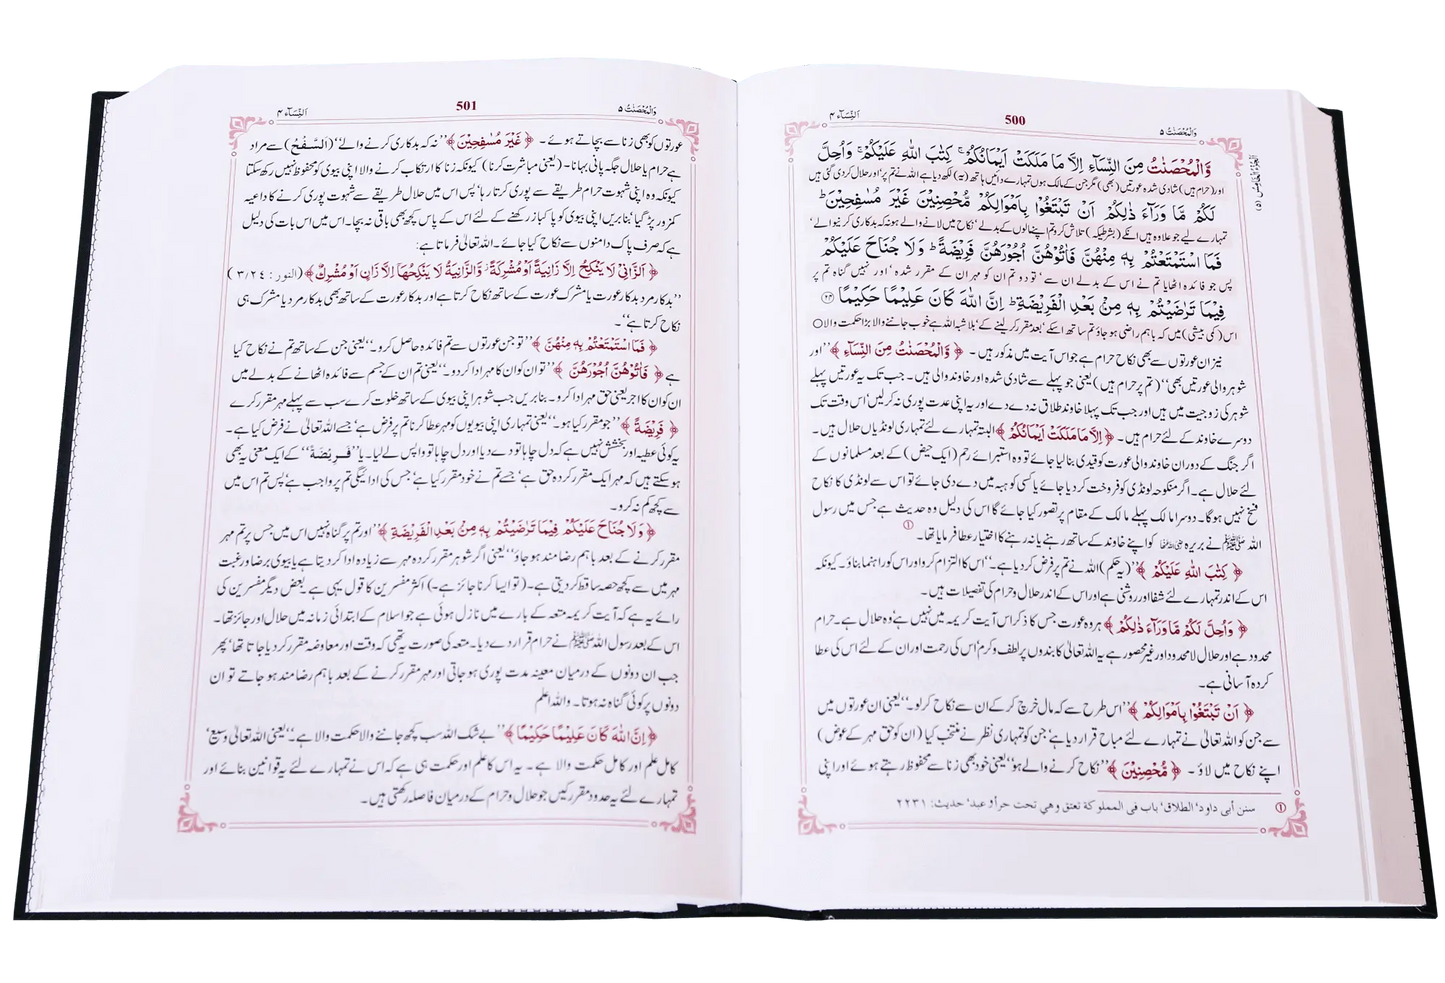 وَالْمُحْصَنٰتُ ۵
500
اَلنِّسَآء ۴
وَّالْمُحْصَنٰتُ مِنَ النِّسَآءِ اِلَّا مَا مَلَكَتْ اَيْمَانُكُمْ ۚ كِتٰبَ اللّٰهِ عَلَيْكُمْ ۚ وَاُحِلَّ
اور (حرام ہیں) شادی شدہ عورتیں (بھی) مگر جن کے مالک ہوں تمہارے دائیں ہاتھ (یہ) لکھ دیا ہے اللہ نے تم پر‘ اور حلال کر دی گئی ہیں
لَكُمْ مَّا وَرَآءَ ذٰلِكُمْ اَنْ تَبْتَغُوْا بِاَمْوَالِكُمْ مُّحْصِنِيْنَ غَيْرَ مُسٰفِحِيْنَ ؕ
تمہارے لیے جو علاوہ ہیں انکے (بشرطیکہ) تلاش کرو تم اپنے مالوں کے بدلے‘ نکاح میں لانے والے ہو نہ کہ بدکاری کرنیوالے‘
فَمَا اسْتَمْتَعْتُمْ بِهٖ مِنْهُنَّ فَاٰتُوْهُنَّ اُجُوْرَهُنَّ فَرِيْضَةً ؕ وَلَا جُنَاحَ عَلَيْكُمْ
پس جو فائدہ اٹھایا تم نے اس کے بدلے ان سے‘ تو دو تم ان کو مہر ان کے مقرر شدہ‘ اور نہیں گناہ تم پر
فِيْمَا تَرٰضَيْتُمْ بِهٖ مِنْۢ بَعْدِ الْفَرِيْضَةِ ؕ اِنَّ اللّٰهَ كَانَ عَلِيْمًا حَكِيْمًا ﴿۲۴﴾
اس (کمی بیشی) میں کہ باہم راضی ہو جاؤ تم ساتھ اسکے‘ بعد مقرر کر لینے کے‘ بلاشبہ اللہ ہے خوب جاننے والا بڑا حکمت والا○
نیز ان عورتوں سے بھی نکاح حرام ہے جو اس آیت میں مذکور ہیں۔ ﴿وَّالْمُحْصَنٰتُ مِنَ النِّسَآءِ﴾ ’’اور
شوہر والی عورتیں بھی‘‘ (تم پر حرام ہیں) یعنی جو پہلے سے شادی شدہ اور خاوند والی ہیں۔ جب تک یہ عورتیں پہلے
شوہر کی زوجیت میں ہیں اور جب تک پہلا خاوند طلاق نہ دے دے اور یہ اپنی عدت پوری نہ کر لیں‘ اس وقت تک
دوسرے خاوند کے لئے حرام ہیں۔ ﴿اِلَّا مَا مَلَكَتْ اَيْمَانُكُمْ﴾ البتہ تمہارے لئے تمہاری لونڈیاں حلال ہیں۔
اگر جنگ کے دوران خاوند والی عورت کو قیدی بنا لیا جائے تو وہ استبرائے رحم (ایک حیض) کے بعد مسلمانوں کے
لئے حلال ہے۔ اگر منکوحہ لونڈی کو فروخت کر دیا جائے یا کسی کو ہبہ میں دے دی جائے تو اس سے لونڈی کا نکاح
فسخ نہیں ہوگا۔ دوسرا مالک پہلے مالک کے مقام پر تصور کیا جائے گا اس کی دلیل وہ حدیث ہے جس میں رسول
اللہ ﷺ نے بریرہ کو اپنے خاوند کے ساتھ رہنے یا نہ رہنے کا اختیار عطا فرمایا تھا۔ ①
﴿كِتٰبَ اللّٰهِ عَلَيْكُمْ﴾ ’’(یہ حکم) اللہ نے تم پر فرض کر دیا ہے۔‘‘ اس کا التزام کرو اور اس کو راہنما بناؤ۔ کیونکہ
اس کے اندر تمہارے لئے شفا اور روشنی ہے اور اس کے اندر حلال و حرام کی تفصیلات ہیں۔
﴿وَاُحِلَّ لَكُمْ مَّا وَرَآءَ ذٰلِكُمْ﴾ ہر وہ عورت جس کا ذکر اس آیت کریمہ میں نہیں ہے‘ وہ حلال ہے۔ حرام
محدود ہے اور حلال لامحدود اور غیر محصور ہے یہ اللہ تعالیٰ کا بندوں پر لطف و کرم‘ اس کی رحمت اور ان کے لئے اس کی عطا
کردہ آسانی ہے۔
﴿اَنْ تَبْتَغُوْا بِاَمْوَالِكُمْ﴾ ’’اس طرح سے کہ مال خرچ کر کے ان سے نکاح کر لو۔‘‘ یعنی ان عورتوں میں
سے جن کو اللہ تعالیٰ نے تمہارے لئے مباح قرار دیا ہے‘ جن کو تمہاری نظر نے منتخب کیا (ان کو حق مہر کے عوض)
اپنے نکاح میں لاؤ۔ ﴿مُّحْصِنِيْنَ﴾ ’’نکاح کرنے والے ہو‘‘ یعنی خود بھی زنا سے محفوظ رہتے ہوئے اور اپنی
① سنن أبی داود‘ الطلاق‘ باب فی المملوكة تعتق وهي تحت حر أو عبد‘ حديث: ۲۲۳۱
وَالْمُحْصَنٰتُ ۵
501
اَلنِّسَآء ۴
عورتوں کو بھی زنا سے بچاتے ہوئے۔ ﴿غَيْرَ مُسٰفِحِيْنَ﴾ ’’نہ کہ بدکاری کرنے والے‘‘ (اَلسَّفْح) سے مراد
ہے حرام یا حلال جگہ پانی بہانا۔ (یعنی مباشرت کرنا) کیونکہ زنا کا ارتکاب کرنے والا اپنی بیوی کو محفوظ نہیں رکھ سکتا
کیونکہ وہ اپنی شہوت حرام طریقے سے پوری کرتا رہا‘ پس اس میں حلال طریقے سے شہوت پوری کرنے کا داعیہ
کمزور پڑ گیا‘ بنا بریں اپنی بیوی کو پاکباز رکھنے کے لئے اس کے پاس کچھ بھی باقی نہ بچا۔ اس میں اس بات کی دلیل
ہے کہ صرف پاک دامنوں سے نکاح کیا جائے۔ اللہ تعالیٰ فرماتا ہے:
﴿اَلزَّانِيْ لَا يَنْكِحُ اِلَّا زَانِيَةً اَوْ مُشْرِكَةً ۚ وَّالزَّانِيَةُ لَا يَنْكِحُهَا اِلَّا زَانٍ اَوْ مُشْرِكٌ﴾ (النور : ۳/۲۴)
’’بدکار مرد بدکار عورت یا مشرک عورت کے ساتھ نکاح کرتا ہے اور بدکار عورت کے ساتھ بھی بدکار مرد یا مشرک ہی
نکاح کرتا ہے‘‘۔
﴿فَمَا اسْتَمْتَعْتُمْ بِهٖ مِنْهُنَّ﴾ ’’تو جن عورتوں سے تم فائدہ حاصل کرو۔‘‘ یعنی جن کے ساتھ تم نے نکاح کیا
ہے ﴿فَاٰتُوْهُنَّ اُجُوْرَهُنَّ﴾ ’’تو ان کو ان کا مہر ادا کر دو۔‘‘ یعنی تم ان کے جسم سے فائدہ اٹھانے کے بدلے میں
ان کو ان کا اجر یعنی حق مہر ادا کرو۔ بنا بریں جب شوہر اپنی بیوی کے ساتھ خلوت کرے سب سے پہلے مہر مقرر کرے
﴿فَرِيْضَةً﴾ ’’جو مقرر کیا ہو۔‘‘ یعنی تمہاری اپنی بیویوں کو مہر عطا کرنا تم پر فرض ہے‘ جسے اللہ تعالیٰ نے فرض کیا ہے۔
یہ کوئی عطیہ اور بخشش نہیں ہے کہ دل چاہا تو دے دیا اور دل چاہا تو واپس لے لیا۔ یا ’’فَرِيْضَةً‘‘ کے ایک معنی یہ بھی
ہو سکتے ہیں کہ مہر ایک مقرر کردہ حق ہے‘ جسے تم نے خود مقرر کیا ہے‘ جس کی ادائیگی تم پر واجب ہے‘ پس تم اس میں
سے کچھ کم نہ کرو۔
﴿وَلَا جُنَاحَ عَلَيْكُمْ فِيْمَا تَرٰضَيْتُمْ بِهٖ مِنْۢ بَعْدِ الْفَرِيْضَةِ﴾ ’’اور تم پر گناہ نہیں اس میں جس پر تم مہر
مقرر کرنے کے بعد باہم رضا مند ہو جاؤ‘‘ یعنی اگر شوہر مقرر کردہ مہر سے زیادہ ادا کر دیتا ہے یا بیوی برضا و رغبت
مہر میں سے کچھ حصہ ساقط کر دیتی ہے۔ (تو ایسا کرنا جائز ہے۔) اکثر مفسرین کا قول یہی ہے بعض دیگر مفسرین کی
رائے یہ ہے کہ آیت کریمہ متعہ کے بارے میں نازل ہوئی ہے جو اسلام کے ابتدائی زمانہ میں حلال اور جائز تھا۔
اس کے بعد رسول اللہ ﷺ نے حرام قرار دے دیا۔ متعہ کی صورت یہ تھی کہ وقت اور معاوضہ مقرر کر دیا جاتا تھا‘ پھر
جب ان دونوں کے درمیان معینہ مدت پوری ہو جاتی اور مہر مقرر کرنے کے بعد باہم رضا مند ہو جاتے تو ان
دونوں پر کوئی گناہ نہ ہوتا۔ واللہ اعلم
﴿اِنَّ اللّٰهَ كَانَ عَلِيْمًا حَكِيْمًا﴾ ’’بے شک اللہ سب کچھ جاننے والا حکمت والا ہے۔‘‘ یعنی اللہ تعالیٰ وسیع‘
کامل علم اور کامل حکمت والا ہے۔ یہ اس کا علم اور حکمت ہی ہے کہ اس نے تمہارے لئے یہ قوانین بنائے اور
تمہارے لئے یہ حدود مقرر کیں جو حلال و حرام کے درمیان فاصلہ رکھتی ہیں۔